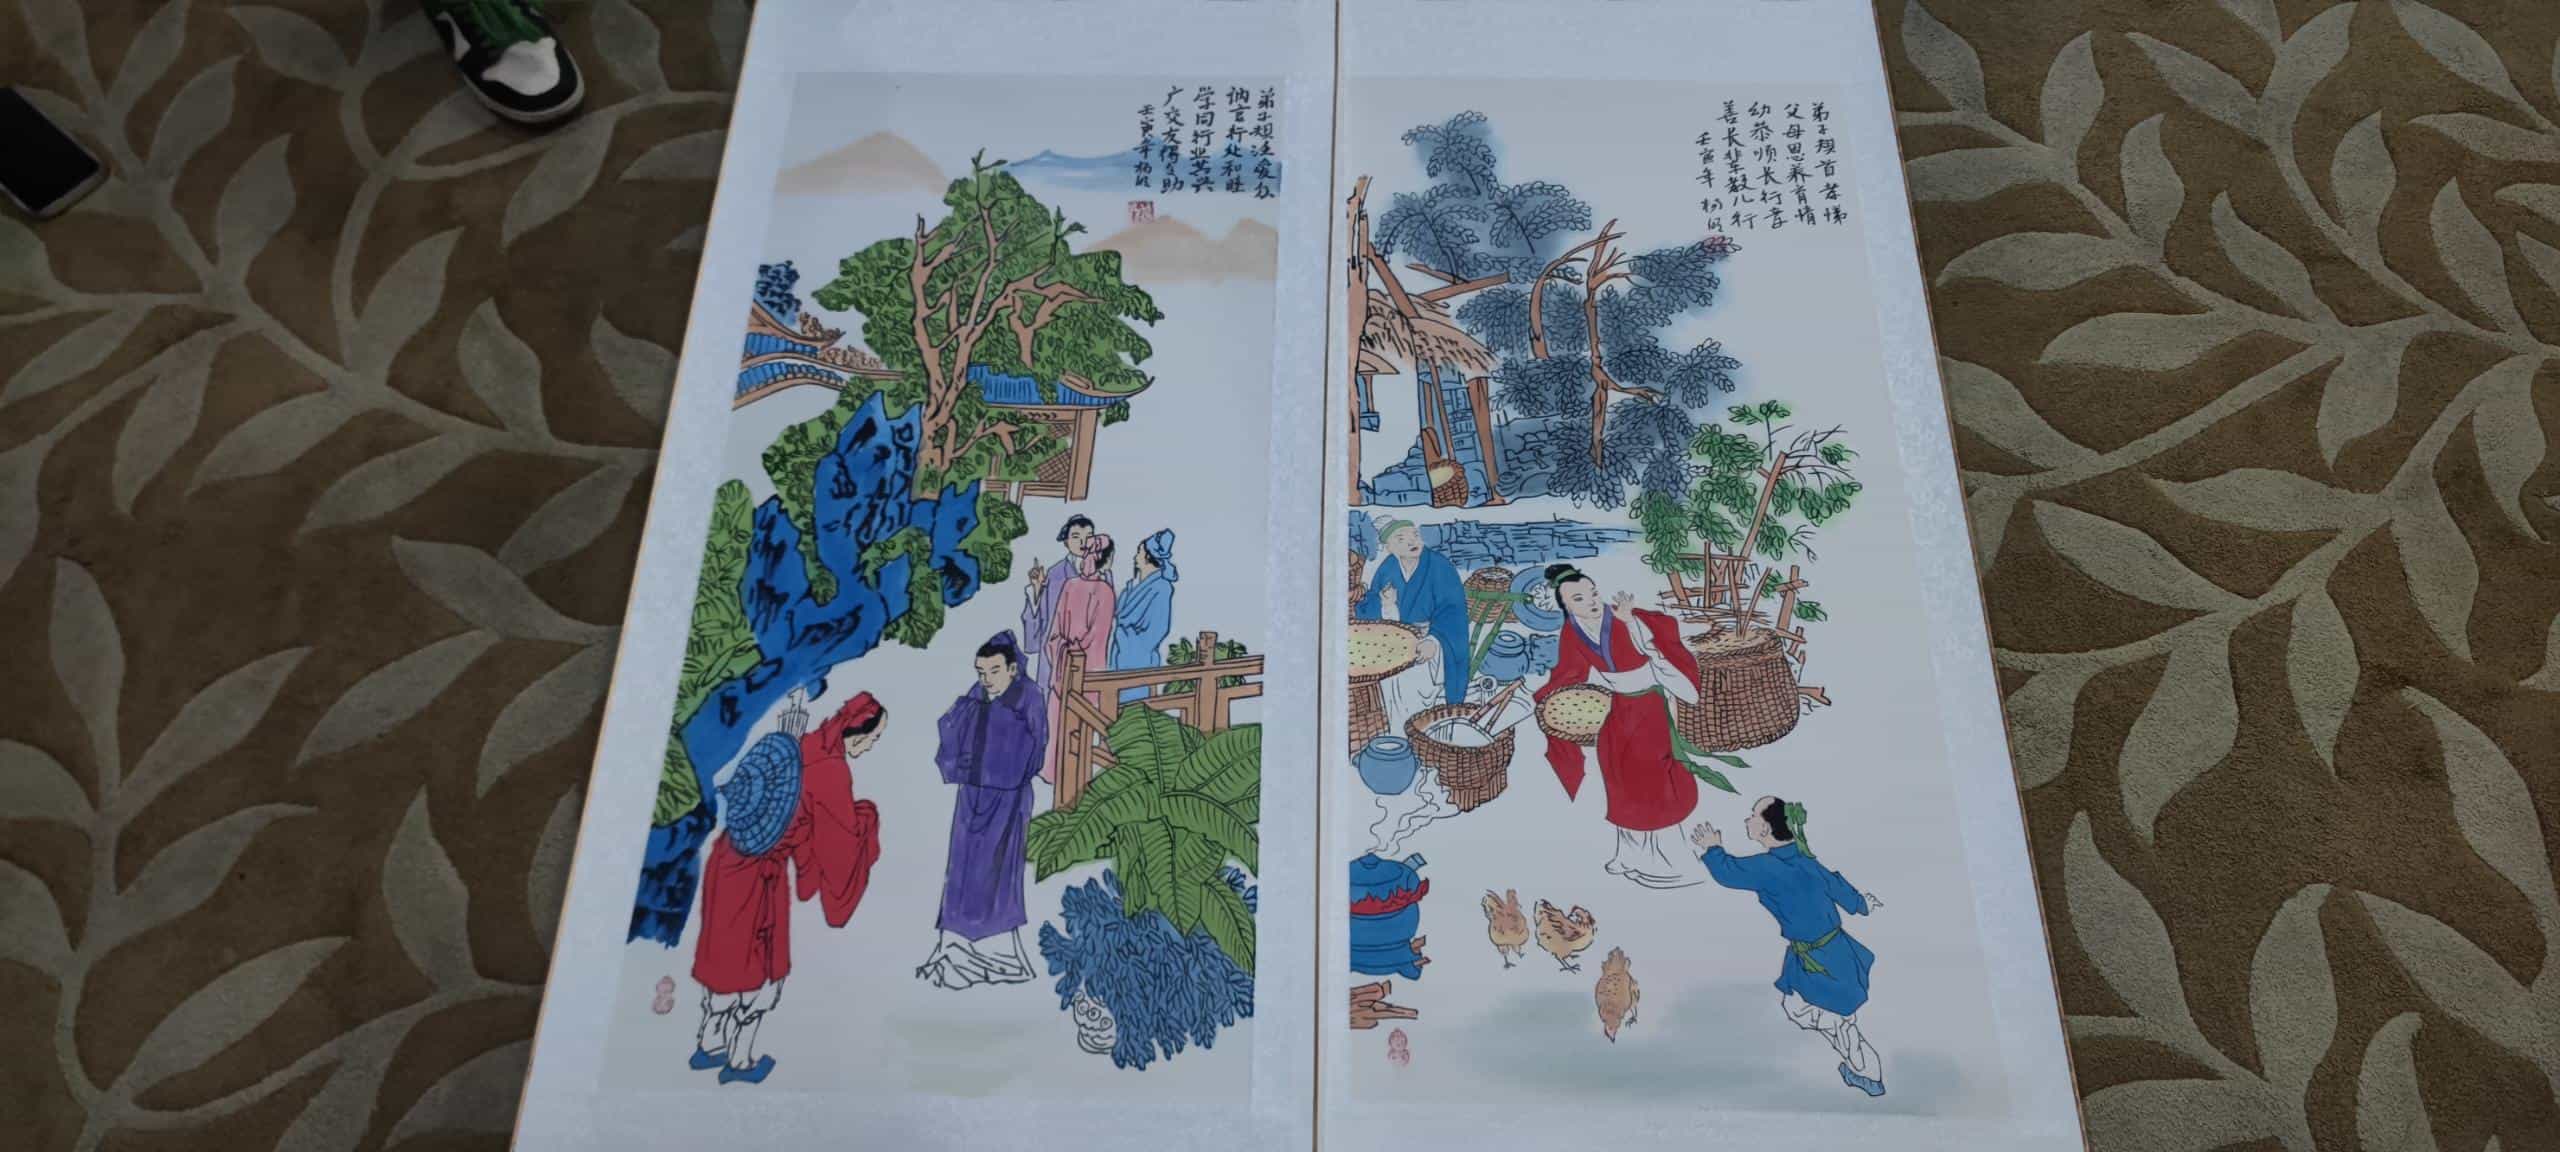 弟子规首孝悌
父母恩养育情
幼恭顺长行孝
善长辈教儿行
壬寅年
弟子规泛爱众
讷言行处和睦
学问行业共兴
广交友得互助
壬寅年